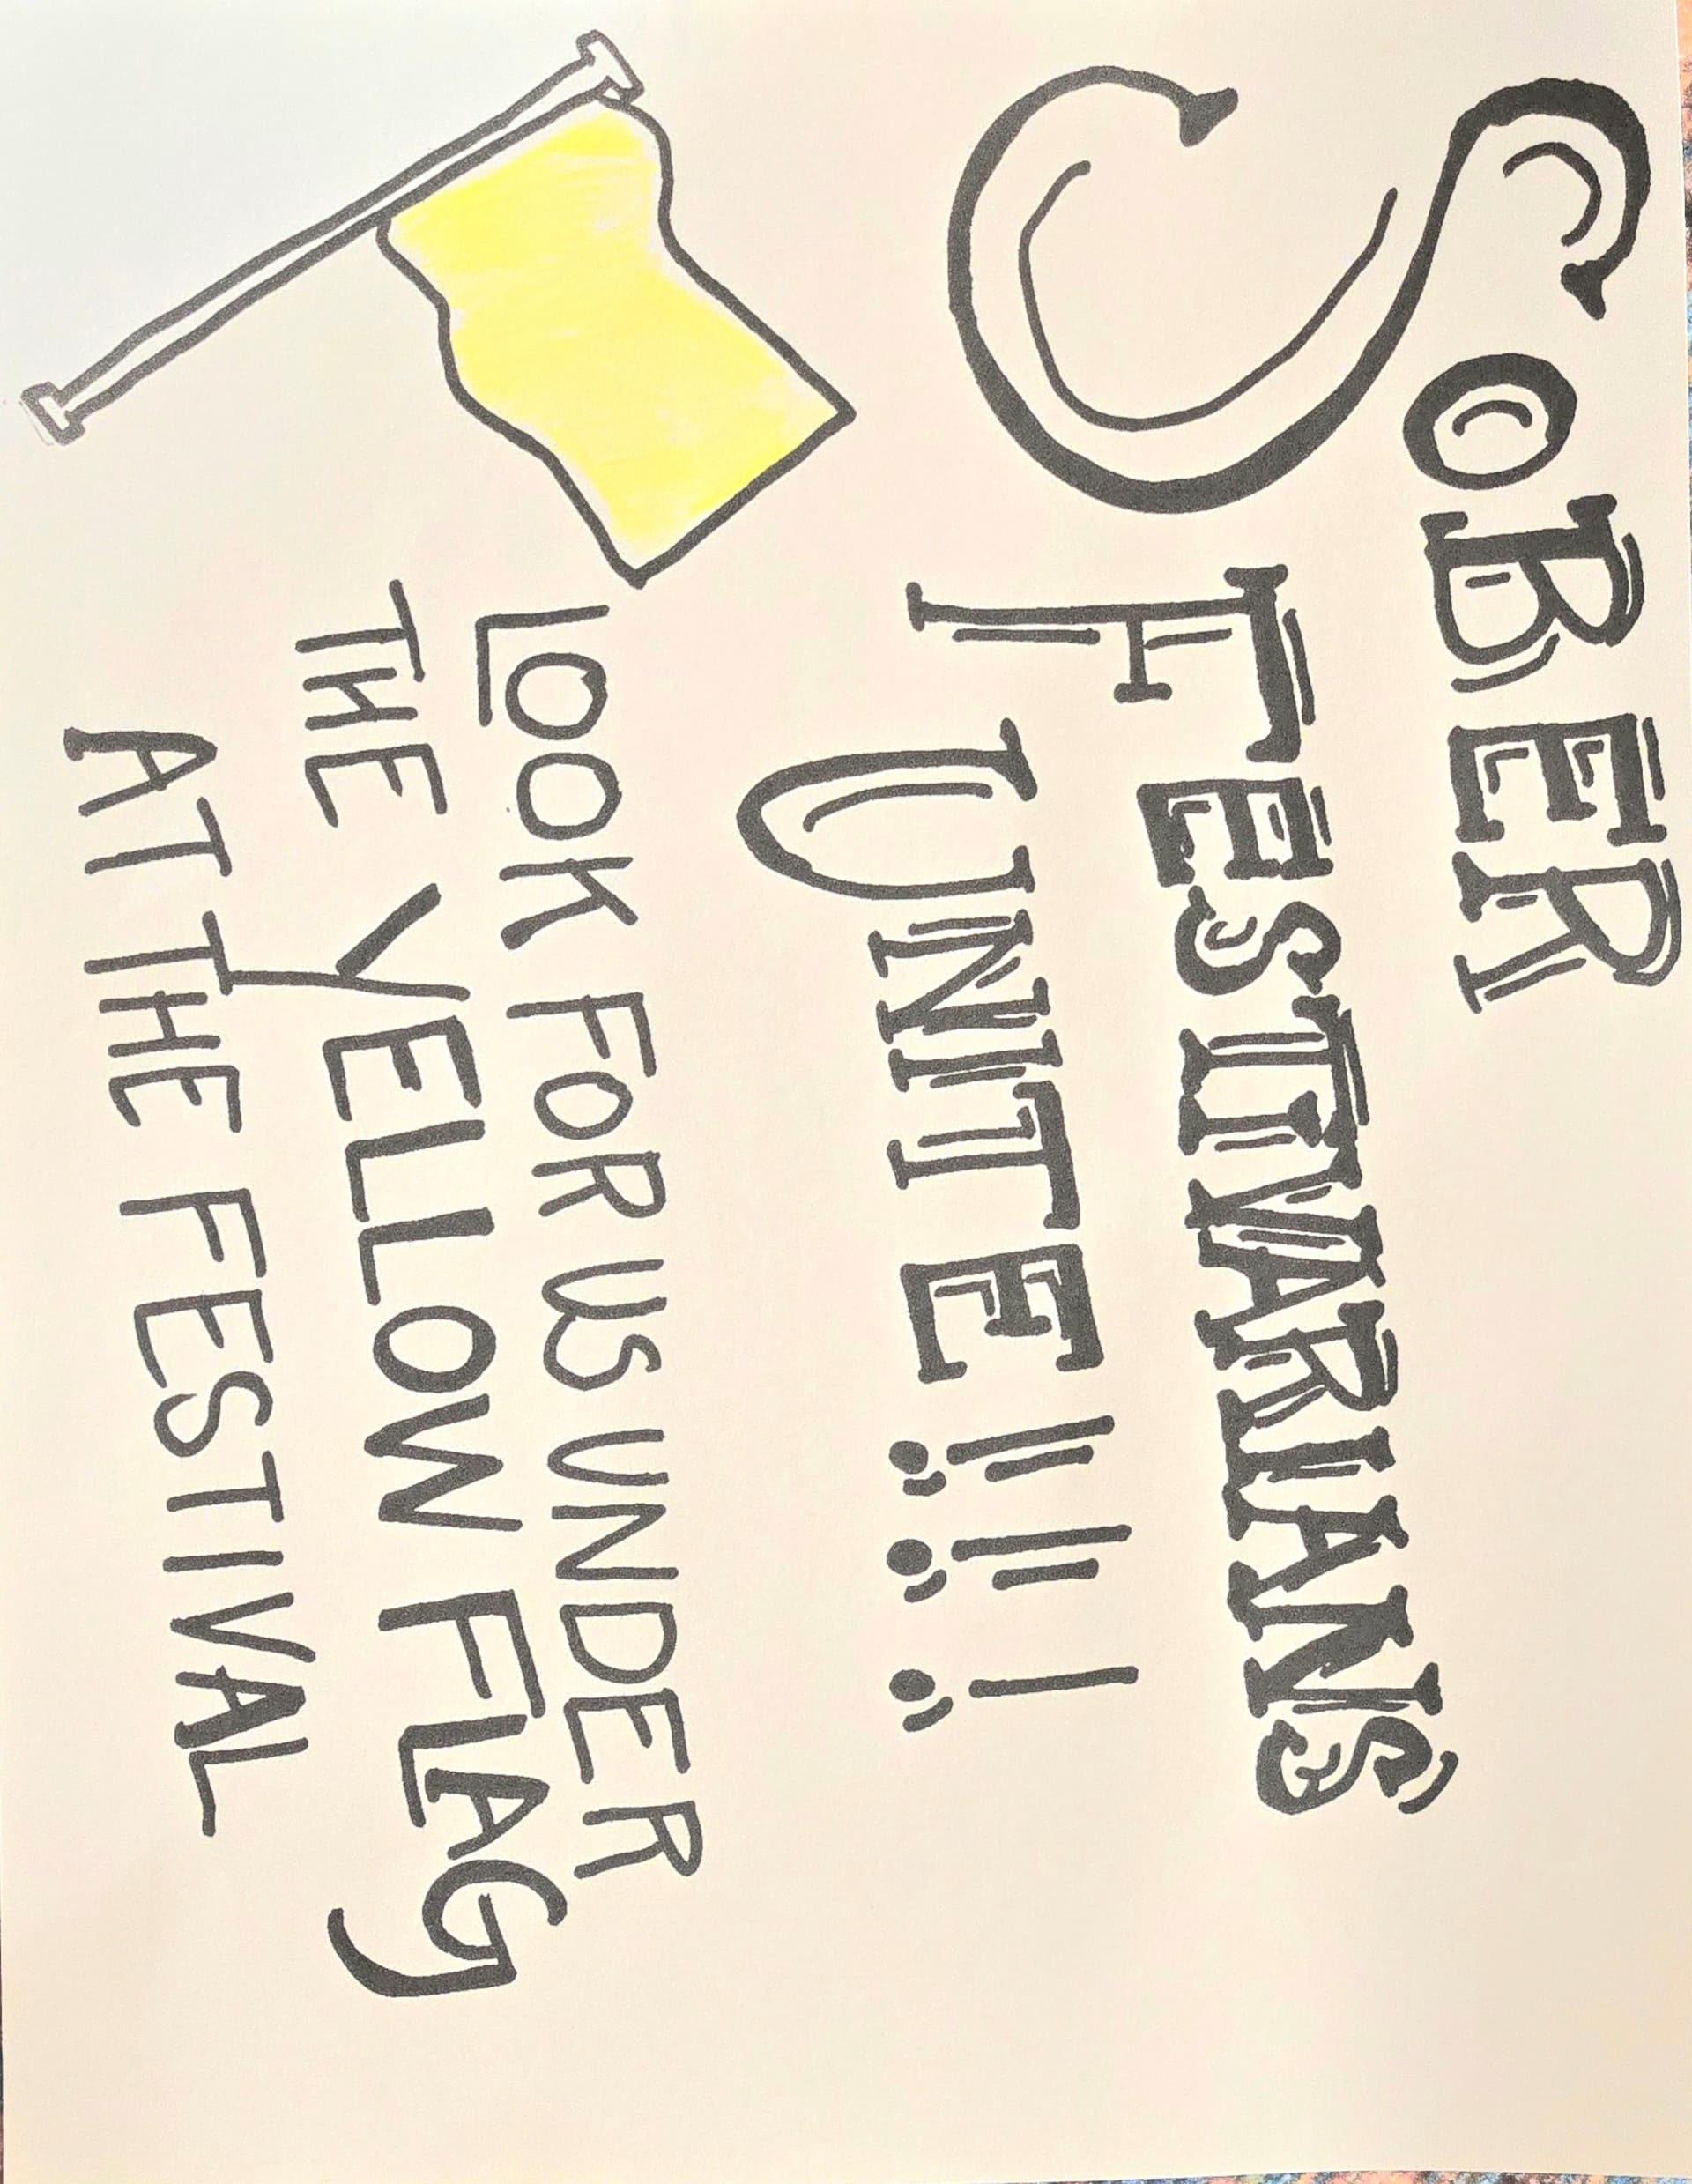 SOBER
FESTIVARIANS
UNITE!!!
LOOK FOR US UNDER
THE YELLOW FLAG
AT THE FESTIVAL